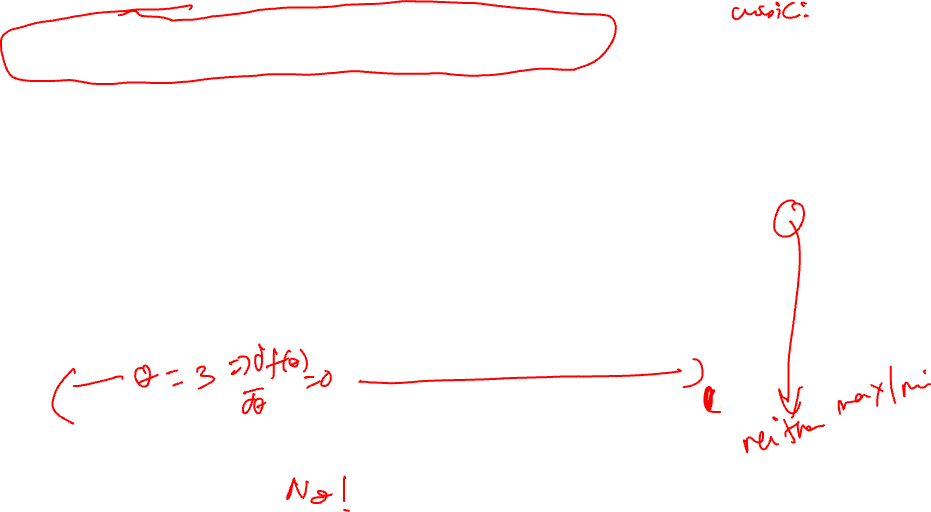 cubic:
θ = 3 => df(θ)/dθ = 0
neither max/mi
No!